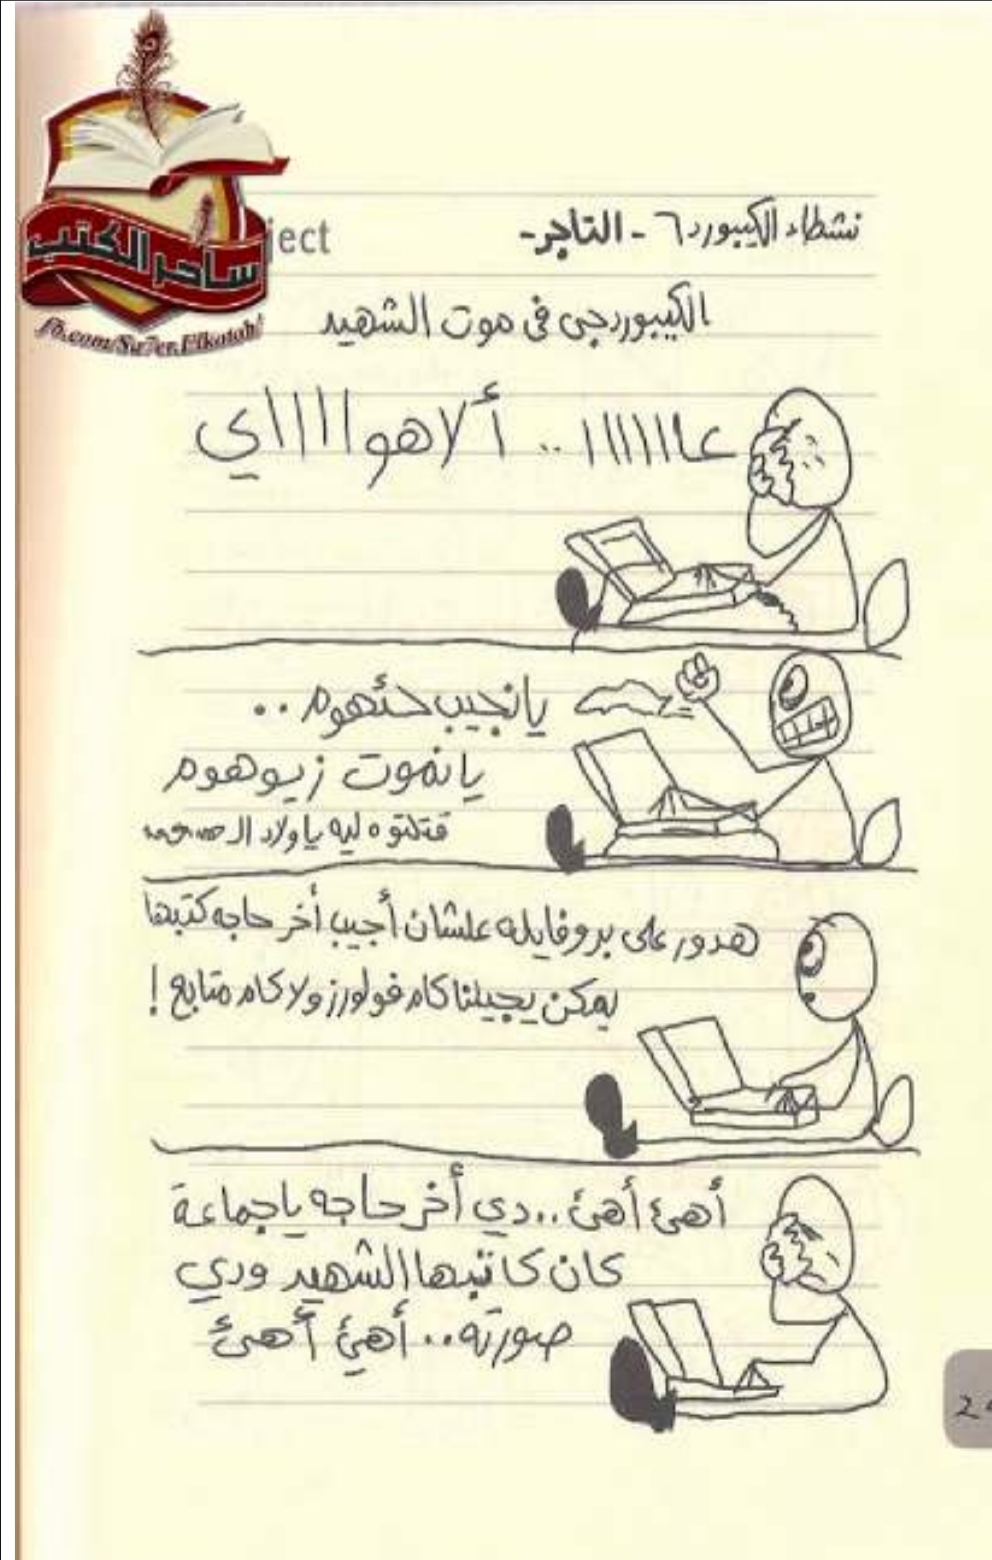 ساحر الكتب
fb.com/Sa7er.Elkotob/
ject
نشطاء الكيبورد ٦ - التاجر -
الكيبوردجي في موت الشهيد
عاااااا .. ألاهوااااي
يا نجيب حئهوم ..
يا نموت زيوهوم
قتلتوه ليه يا ولاد الـ
هدور على بروفايله علشان أجيب أخر حاجه كتبها
يمكن يجيلنا كام فولورز ولا كام متابع !
أهئ أهئ .. دي أخر حاجه يا جماعة
كان كاتبها الشهيد ودي
صورته .. أهئ أهئ